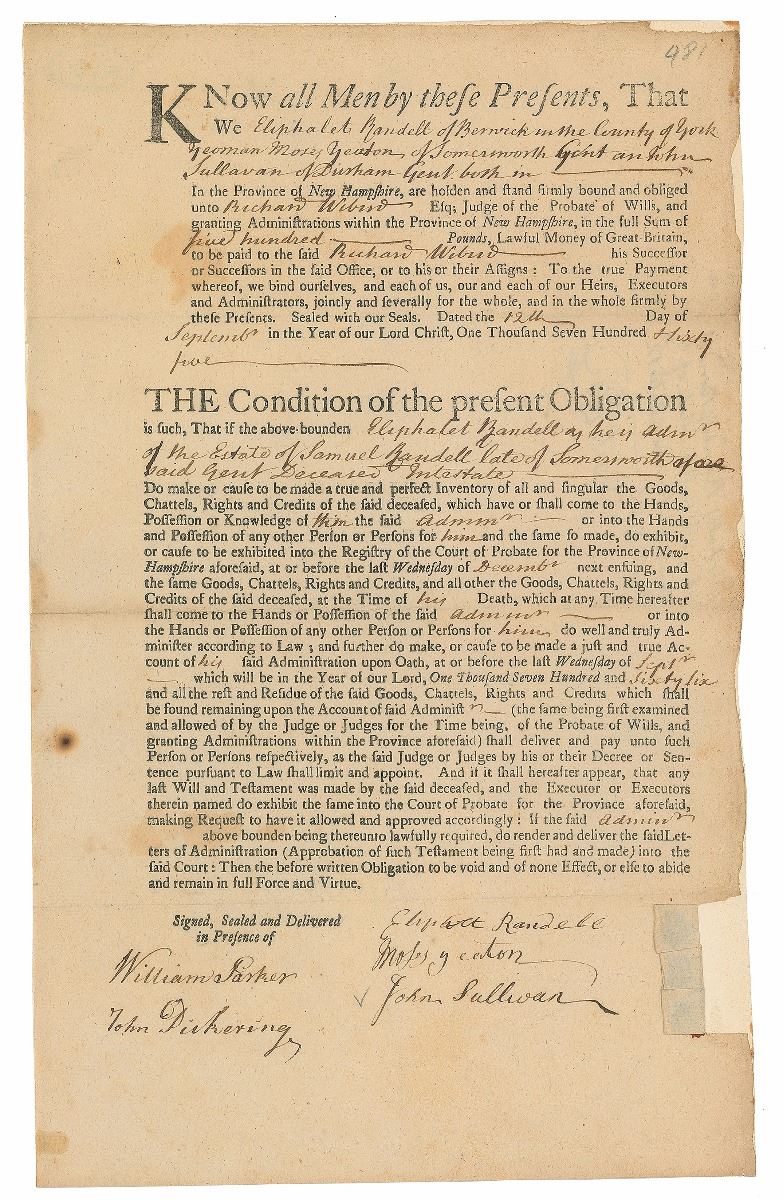 981
KNow all Men by theſe Preſents, That
We Eliphalet Randell of Berwick in the County of York
Yeoman Moses Yeaton of Somersworth Gent an John
Sullavan of Durham Gent both in
In the Province of New Hampſhire, are holden and ſtand firmly bound and obliged
unto Richard Wibird Eſq; Judge of the Probate of Wills, and
granting Adminiſtrations within the Province of New Hampſhire, in the full Sum of
five hundred Pounds, Lawful Money of Great-Britain,
to be paid to the ſaid Richard Wibird his Succeſſor
or Succeſſors in the ſaid Office, or to his or their Aſſigns : To the true Payment
whereof, we bind ourſelves, and each of us, our and each of our Heirs, Executors
and Adminiſtrators, jointly and ſeverally for the whole, and in the whole firmly by
theſe Preſents. Sealed with our Seals. Dated the 12th Day of
Septembr in the Year of our Lord Chriſt, One Thouſand Seven Hundred & Sixty
five
THE Condition of the preſent Obligation
is ſuch, That if the above-bounden Eliphalet Randell as he is Admr
of the Estate of Samuel Randell late of Somersworth afore
said Gent Deceased Intestate
Do make or cauſe to be made a true and perfect Inventory of all and ſingular the Goods,
Chattels, Rights and Credits of the ſaid deceaſed, which have or ſhall come to the Hands,
Poſſeſſion or Knowledge of him the ſaid Adminr or into the Hands
and Poſſeſſion of any other Perſon or Perſons for him and the ſame ſo made, do exhibit,
or cauſe to be exhibited into the Regiſtry of the Court of Probate for the Province of New-
Hampſhire aforeſaid, at or before the laſt Wedneſday of Decembr next enſuing, and
the ſame Goods, Chattels, Rights and Credits, and all other the Goods, Chattels, Rights and
Credits of the ſaid deceaſed, at the Time of his Death, which at any Time hereafter
ſhall come to the Hands or Poſſeſſion of the ſaid Adminr or into
the Hands or Poſſeſſion of any other Perſon or Perſons for him do well and truly Ad-
miniſter according to Law ; and further do make, or cauſe to be made a juſt and true Ac-
count of his ſaid Adminiſtration upon Oath, at or before the laſt Wedneſday of Septr
which will be in the Year of our Lord, One Thouſand Seven Hundred and Sixty six
and all the reſt and Reſidue of the ſaid Goods, Chattels, Rights and Credits which ſhall
be found remaining upon the Account of ſaid Adminiſtr (the ſame being firſt examined
and allowed of by the Judge or Judges for the Time being, of the Probate of Wills, and
granting Adminiſtrations within the Province aforeſaid) ſhall deliver and pay unto ſuch
Perſon or Perſons reſpectively, as the ſaid Judge or Judges by his or their Decree or Sen-
tence purſuant to Law ſhall limit and appoint. And if it ſhall hereafter appear, that any
laſt Will and Teſtament was made by the ſaid deceaſed, and the Executor or Executors
therein named do exhibit the ſame into the Court of Probate for the Province aforeſaid,
making Requeſt to have it allowed and approved accordingly : If the ſaid Adminr
above bounden being thereunto lawfully required, do render and deliver the ſaid Let-
ters of Adminiſtration (Approbation of ſuch Teſtament being firſt had and made) into the
ſaid Court : Then the before written Obligation to be void and of none Effect, or elſe to abide
and remain in full Force and Virtue.
Signed, Sealed and Delivered
in Preſence of
Eliphalet Randell
Moses yeaton
William Parker
John Sullivan
John Pickering